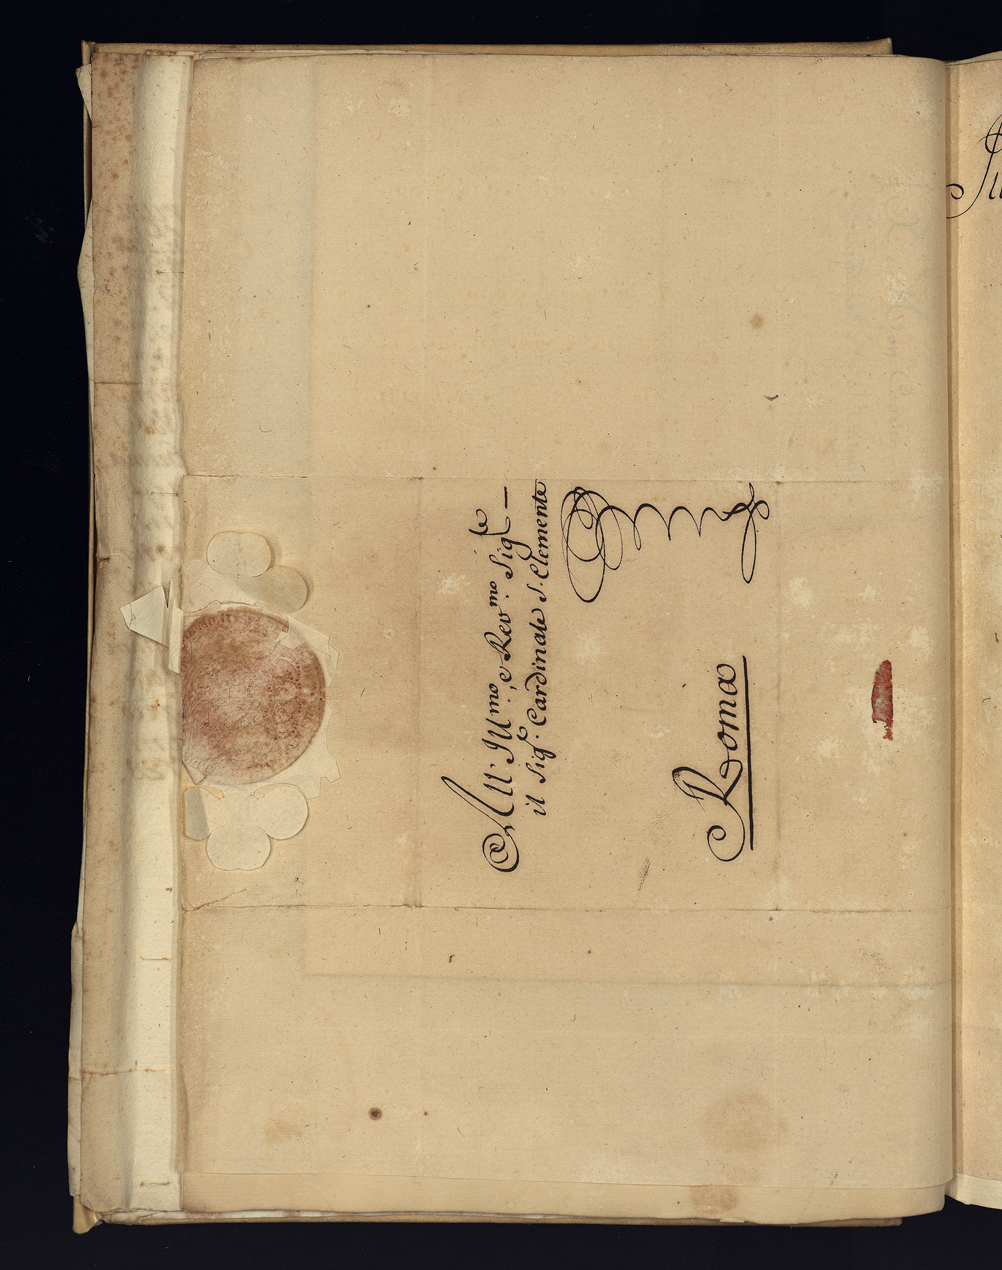 All' Ill.mo, e Rev.mo Sig.re
il Sig.r Cardinale S. Clemente
Roma